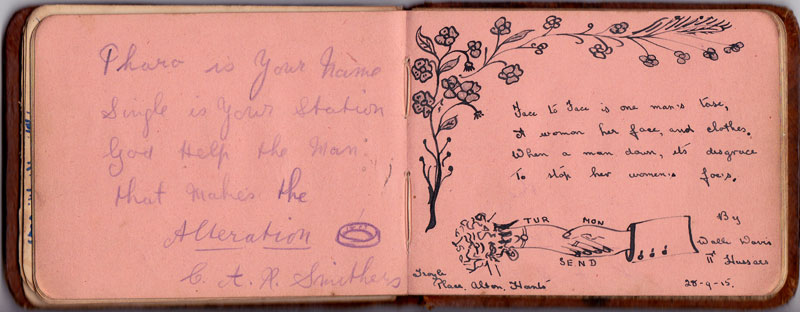 Pharo is Your Name
Single is Your Station
God Help the Man
that makes the
Alteration
C. A. R. Smithers
Face to Face is one man's task,
A woman her face, and clothes.
When a man down, its disgrace
To stop her women's foe's.
TUR MON
SEND
By
Walli Davis
11th Hussars
Place. Alton. Hants
28-9-15.